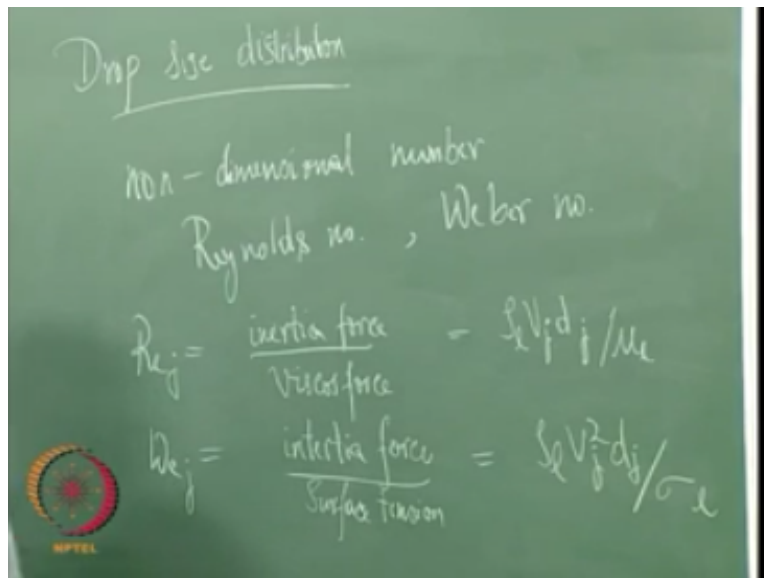 Drop size distribution
non-dimensional number
Reynolds no., Weber no.
Re_j = inertia force / Viscos force = ρ_l V_j d_j / μ_l
We_j = intertia force / Surface Tension = ρ_l V_j² d_j / σ_l
NPTEL